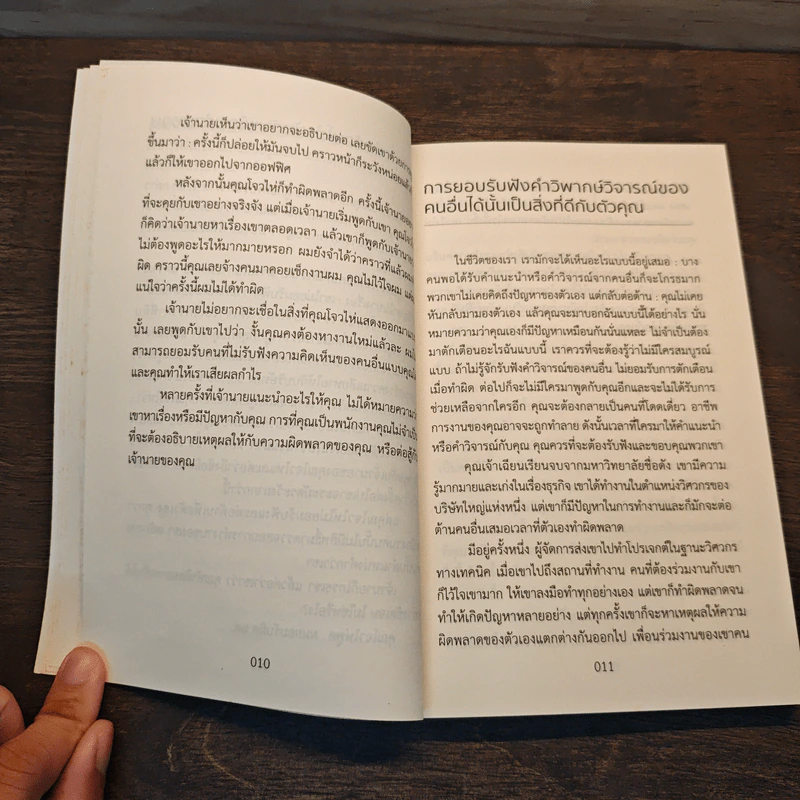 เจ้านายเห็นว่าเขาอยากจะอธิบายต่อ เลยขัดเขาด้วยการ
ขึ้นมาว่า : ครั้งนี้ก็ปล่อยให้มันจบไป คราวหน้าก็ระวังหน่อยแล้ว
แล้วก็ให้เขาออกไปจากออฟฟิศ
หลังจากนั้นคุณโจวไห่ก็ทำผิดพลาดอีก ครั้งนี้เจ้านาย
ที่จะคุยกับเขาอย่างจริงจัง แต่เมื่อเจ้านายเริ่มพูดกับเขา
ก็คิดว่าเจ้านายหาเรื่องเขาตลอดเวลา แล้วเขาก็พูดกับเจ้านาย
ไม่ต้องพูดอะไรให้มากมายหรอก ผมยังจำได้ว่าคราวที่แล้ว
ผิด คราวนี้คุณเลยจ้างคนมาคอยเช็กงานผม คุณไม่ไว้ใจผม
แน่ใจว่าครั้งนี้ผมไม่ได้ทำผิด
เจ้านายไม่อยากจะเชื่อในสิ่งที่คุณโจวไห่แสดงออกมา
นั้น เลยพูดกับเขาไปว่า งั้นคุณคงต้องหางานใหม่แล้วละ
สามารถยอมรับคนที่ไม่รับฟังความคิดเห็นของคนอื่นแบบคุณ
และคุณทำให้เราเสียผลกำไร
หลายครั้งที่เจ้านายแนะนำอะไรให้คุณ ไม่ได้หมายความ
เขาหาเรื่องหรือมีปัญหากับคุณ การที่คุณเป็นพนักงานคุณไม่จำเป็น
ที่จะต้องอธิบายเหตุผลให้กับความผิดพลาดของคุณ หรือต่อสู้กับ
เจ้านายของคุณ
010
การยอมรับฟังคำวิพากษ์วิจารณ์ของ
คนอื่นได้นั้นเป็นสิ่งที่ดีกับตัวคุณ
ในชีวิตของเรา เรามักจะได้เห็นอะไรแบบนี้อยู่เสมอ : บาง
คนพอได้รับคำแนะนำหรือคำวิจารณ์จากคนอื่นก็จะโกรธมาก
พวกเขาไม่เคยคิดถึงปัญหาของตัวเอง แต่กลับต่อต้าน : คุณไม่เคย
หันกลับมามองตัวเอง แล้วคุณจะมาบอกฉันแบบนี้ได้อย่างไร นั่น
หมายความว่าคุณก็มีปัญหาเหมือนกันนั่นแหละ ไม่จำเป็นต้อง
มาตักเตือนอะไรฉันแบบนี้ เราควรที่จะต้องรู้ว่าไม่มีใครสมบูรณ์
แบบ ถ้าไม่รู้จักรับฟังคำวิจารณ์ของคนอื่น ไม่ยอมรับการตักเตือน
เมื่อทำผิด ต่อไปก็จะไม่มีใครมาพูดกับคุณอีกและจะไม่ได้รับการ
ช่วยเหลือจากใครอีก คุณจะต้องกลายเป็นคนที่โดดเดี่ยว อาชีพ
การงานของคุณอาจจะถูกทำลาย ดังนั้นเวลาที่ใครมาให้คำแนะนำ
หรือคำวิจารณ์กับคุณ คุณควรที่จะต้องรับฟังและขอบคุณพวกเขา
คุณเจ้าเฉียนเรียนจบจากมหาวิทยาลัยชื่อดัง เขามีความ
รู้มากมายและเก่งในเรื่องธุรกิจ เขาได้ทำงานในตำแหน่งวิศวกรของ
บริษัทใหญ่แห่งหนึ่ง แต่เขาก็มีปัญหาในการทำงานและก็มักจะต่อ
ต้านคนอื่นเสมอเวลาที่ตัวเองทำผิดพลาด
มีอยู่ครั้งหนึ่ง ผู้จัดการส่งเขาไปทำโปรเจกต์ในฐานะวิศวกร
ทางเทคนิค เมื่อเขาไปถึงสถานที่ทำงาน คนที่ต้องร่วมงานกับเขา
ก็ไว้ใจเขามาก ให้เขาลงมือทำทุกอย่างเอง แต่เขาก็ทำผิดพลาดจน
ทำให้เกิดปัญหาหลายอย่าง แต่ทุกครั้งเขาก็จะหาเหตุผลให้ความ
ผิดพลาดของตัวเองแตกต่างกันออกไป เพื่อนร่วมงานของเขาคน
011